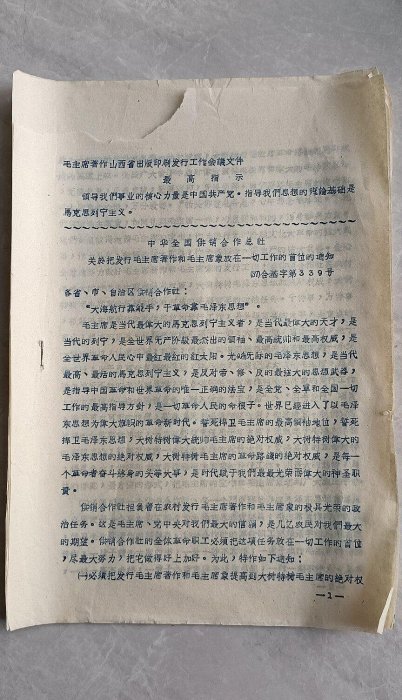 毛主席著作山西省出版印刷发行工作会议文件
最高指示
领导我们事业的核心力量是中国共产党。指导我们思想的理论基础是
马克思列宁主义。
中华全国供销合作总社
关於把发行毛主席著作和毛主席象放在一切工作的首位的通知
(67)合基字第339号
各省、市、自治区供销合作社:
“大海航行靠舵手,干革命靠毛泽东思想”。
毛主席是当代最伟大的马克思列宁主义者,是当代最伟大的天才,是
当代的列宁,是全世界无产阶级最杰出的领袖、最高统帅和最高权威,是
全世界革命人民心中最红最红的红太阳。光焰无际的毛泽东思想,是当代
最高、最活的马克思列宁主义,是反对帝、修、反的最强大的思想武器,
是指导中国革命和世界革命的唯一正确的法宝,是全党、全军和全国一切
工作的最高指导方针,是一切革命人民的命根子。世界已经进入了以毛泽
东思想为伟大旗帜的革命新时代。誓死捍卫毛主席的最高领袖地位,誓死
捍卫毛主席的绝对权威,大树特树伟大统帅毛主席的绝对权威,大树特树伟大的
毛泽东思想的绝对权威,大树特树毛主席的革命路线的绝对权威,是每一
个革命者奋斗终身的头等大事,是时代赋于我们最最光荣而伟大的神圣职
责。
供销合作社担负着在农村发行毛主席著作和毛主席象的极其光荣的政
治任务。这是毛主席、党中央对我们最大的信赖,是几亿农民对我们最大
的期望。供销合作社的全体革命职工必须把这项任务放在一切工作的首位
,尽最大努力,把它做得好上加好。为此,特作如下通知:
(一)必须把发行毛主席著作和毛主席象提高到大树特树毛主席的绝对权
—1—